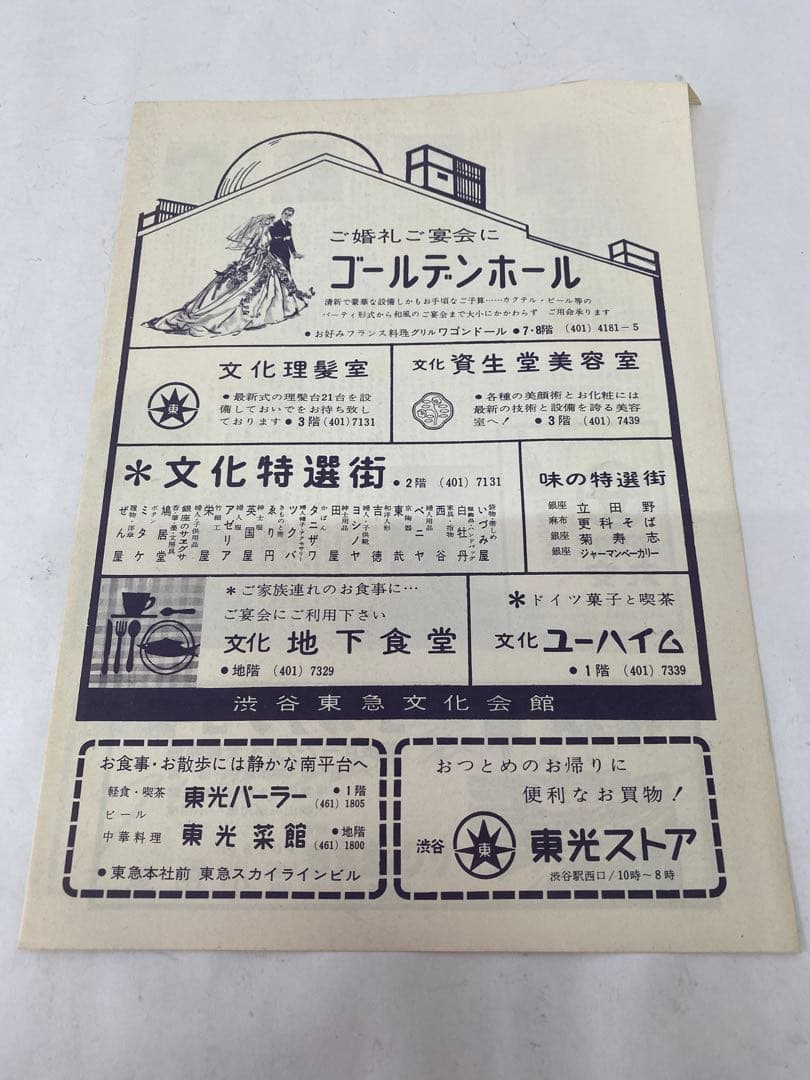 ご婚礼ご宴会に
ゴールデンホール
清新で豪華な設備しかもお手頃なご予算……カクテル・ビール等の
パーティ形式から和風のご宴会まで大小にかかわらず ご用命承ります
●お好みフランス料理グリルワゴンドール ●7・8階 (401) 4181-5
文化理髪室
東
●最新式の理髪台21台を設
備しておいでをお待ち致し
ております ●3階 (401) 7131
文化 資生堂美容室
●各種の美顔術とお化粧には
最新の技術と設備を誇る美容
室へ! ●3階 (401) 7439
*文化特選街 ●2階 (401) 7131
いづみ屋
白牡丹
家具・指物 西谷
婦人用品 ベニヤ
京陶器 東武
和洋人形 吉徳
婦人・子供靴 ヨシノヤ
紳士用品 田屋
かばん タニザワ
婦人帽子・アクセサリー ツクバ
きものと帯 ゑり円
紳士服 英国屋
婦人服 アゼリア
竹細工 栄屋
婦人・子供用品 銀座のサヱグサ
香・筆・墨・士用具 鳩居堂
ボタン ミタケ
履物・洋傘 ぜん屋
味の特選街
銀座 立田野
麻布 更科そば
銀座 菊寿志
銀座 ジャーマンベーカリー
*ご家族連れのお食事に…
ご宴会にご利用下さい
文化 地下食堂
●地階 (401) 7329
*ドイツ菓子と喫茶
文化 ユーハイム
●1階 (401) 7339
渋谷東急文化会館
お食事・お散歩には静かな南平台へ
軽食・喫茶
ビール
東光パーラー ●1階 (461) 1805
中華料理 東光菜館 ●地階 (461) 1800
●東急本社前 東急スカイラインビル
おつとめのお帰りに
便利なお買物!
渋谷 東 東光ストア
渋谷駅西口/10時〜8時